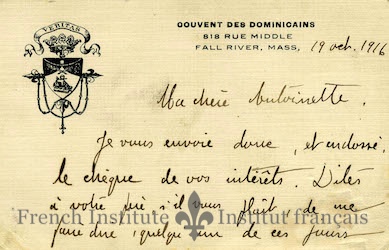 VERITAS
COUVENT DES DOMINICAINS
818 RUE MIDDLE
FALL RIVER, MASS, 19 oct. 1916
Ma chère Antoinette,
Je vous envoie donc, et endossé,
le chèque de vos intérêts. Dites
à votre père, s'il vous plaît, de me
French Institute Institut français
faire dire quelqu'un de ces jours